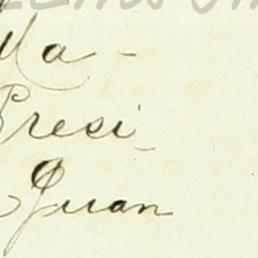 Ma-
Presi-
Juan